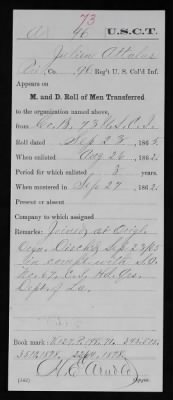 73
A 96 U.S.C.T.
Julien Attalus
Co. 96 Reg't U. S. Col'd Inf.
Appears on
M. and D. Roll of Men Transferred
to the organization named above,
from Co. B, 73 U.S.C.I.
Roll dated Sep 23, 1865.
When enlisted Aug 26, 1862.
Period for which enlisted 3 years
When mustered in Sep 27, 1862.
Present or absent
Company to which assigned
Remarks: Joined at Orig.
Orgn. Disch'd Sep 27/65
in compl. with S.O.
No. 67, C.S. Hd. Qrs.
Dept. of La.
Book mark:
(342) Copyist.